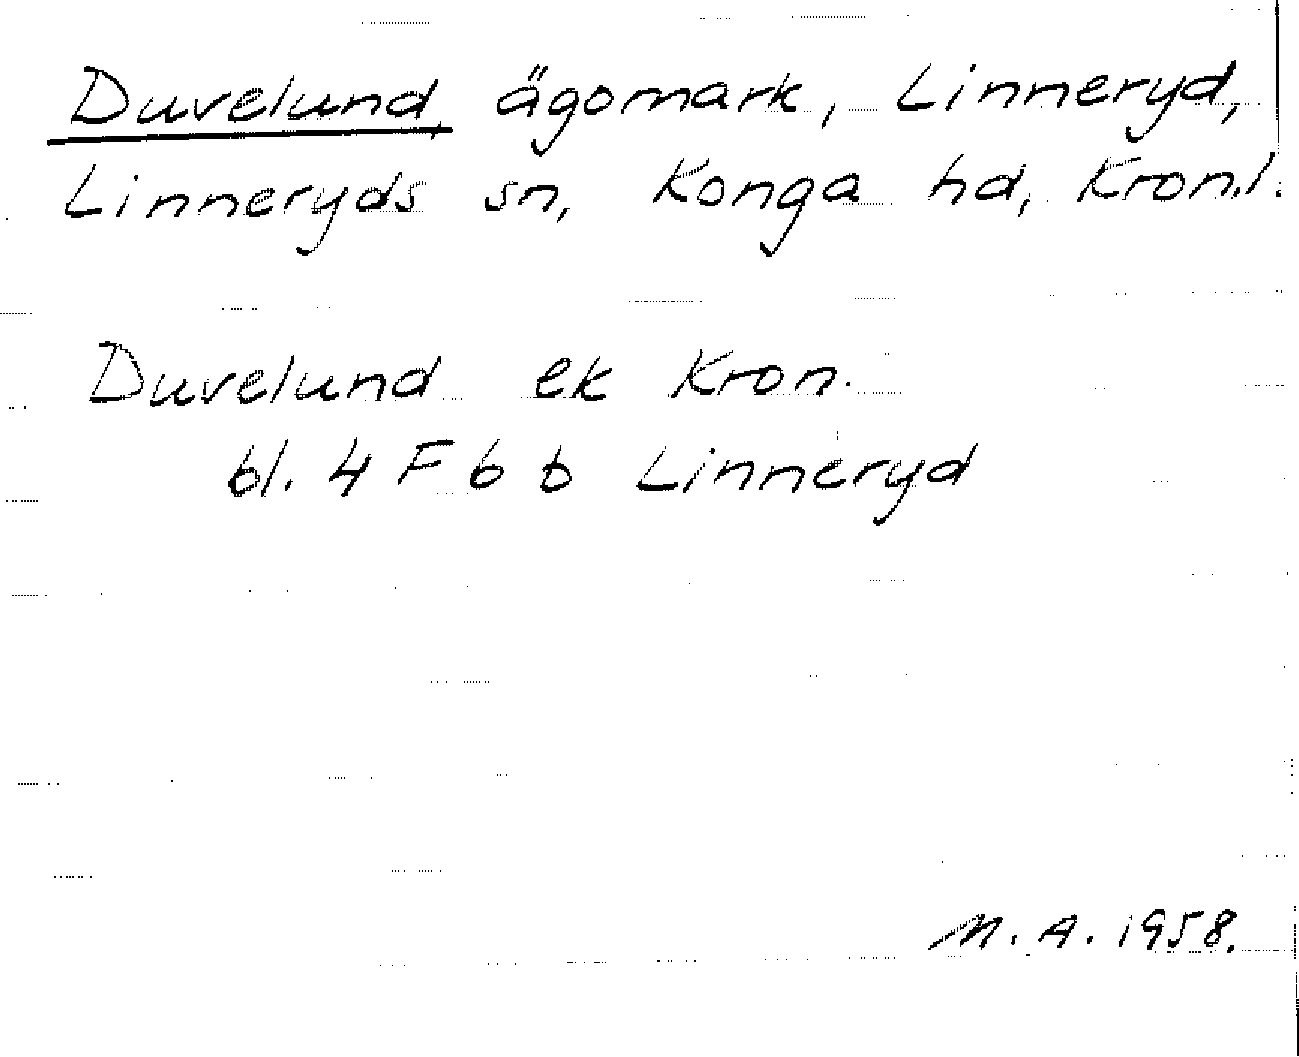 Duvelund, ägomark, Linneryd,
Linneryds sn, Konga hd, Kron.l.
Duvelund ek Kron.
bl. 4 F 6 b Linneryd
M. A. 1958.